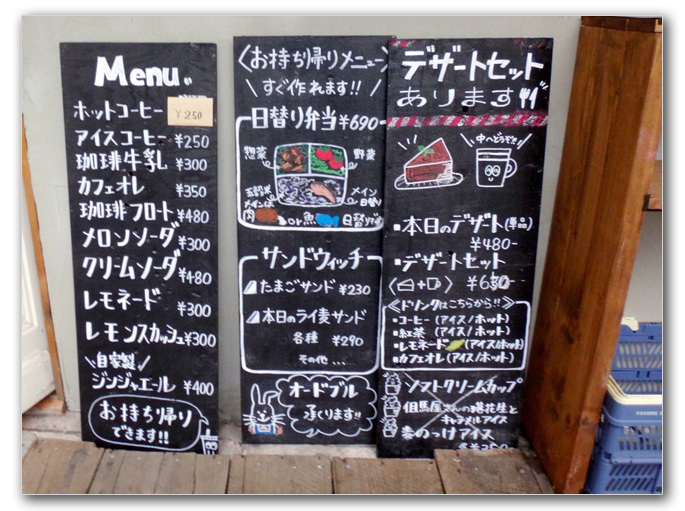 Menu
ホットコーヒー ¥250
アイスコーヒー ¥250
珈琲牛乳 ¥300
カフェオレ ¥350
珈琲フロート ¥480
メロンソーダ ¥300
クリームソーダ ¥480
レモネード ¥300
レモンスカッシュ ¥300
自家製
ジンジャエール ¥400
お持ち帰り
できます!!
〈お持ち帰りメニュー〉
\ すぐ作れます!! /
日替り弁当 ¥690-
惣菜 野菜
五穀米 メイン
メインは 日替り
肉 or 魚 日替りです
サンドウィッチ
たまごサンド ¥230
本日のライ麦サンド
各種 ¥290
その他...
オードブル
承ります!!
デザートセット
あります
中へどうぞ!!
・本日のデザート(単品)
¥480-
・デザートセット
¥650-
≪ドリンクはこちらから!!≫
・コーヒー(アイス/ホット)
・紅茶(アイス/ホット)
・レモネード(アイス/ホット)
・カフェオレ(アイス/ホット)
ソフトクリームカップ
・但馬屋さんの落花生と
キャラメルアイス
・麦のっけアイス
¥350